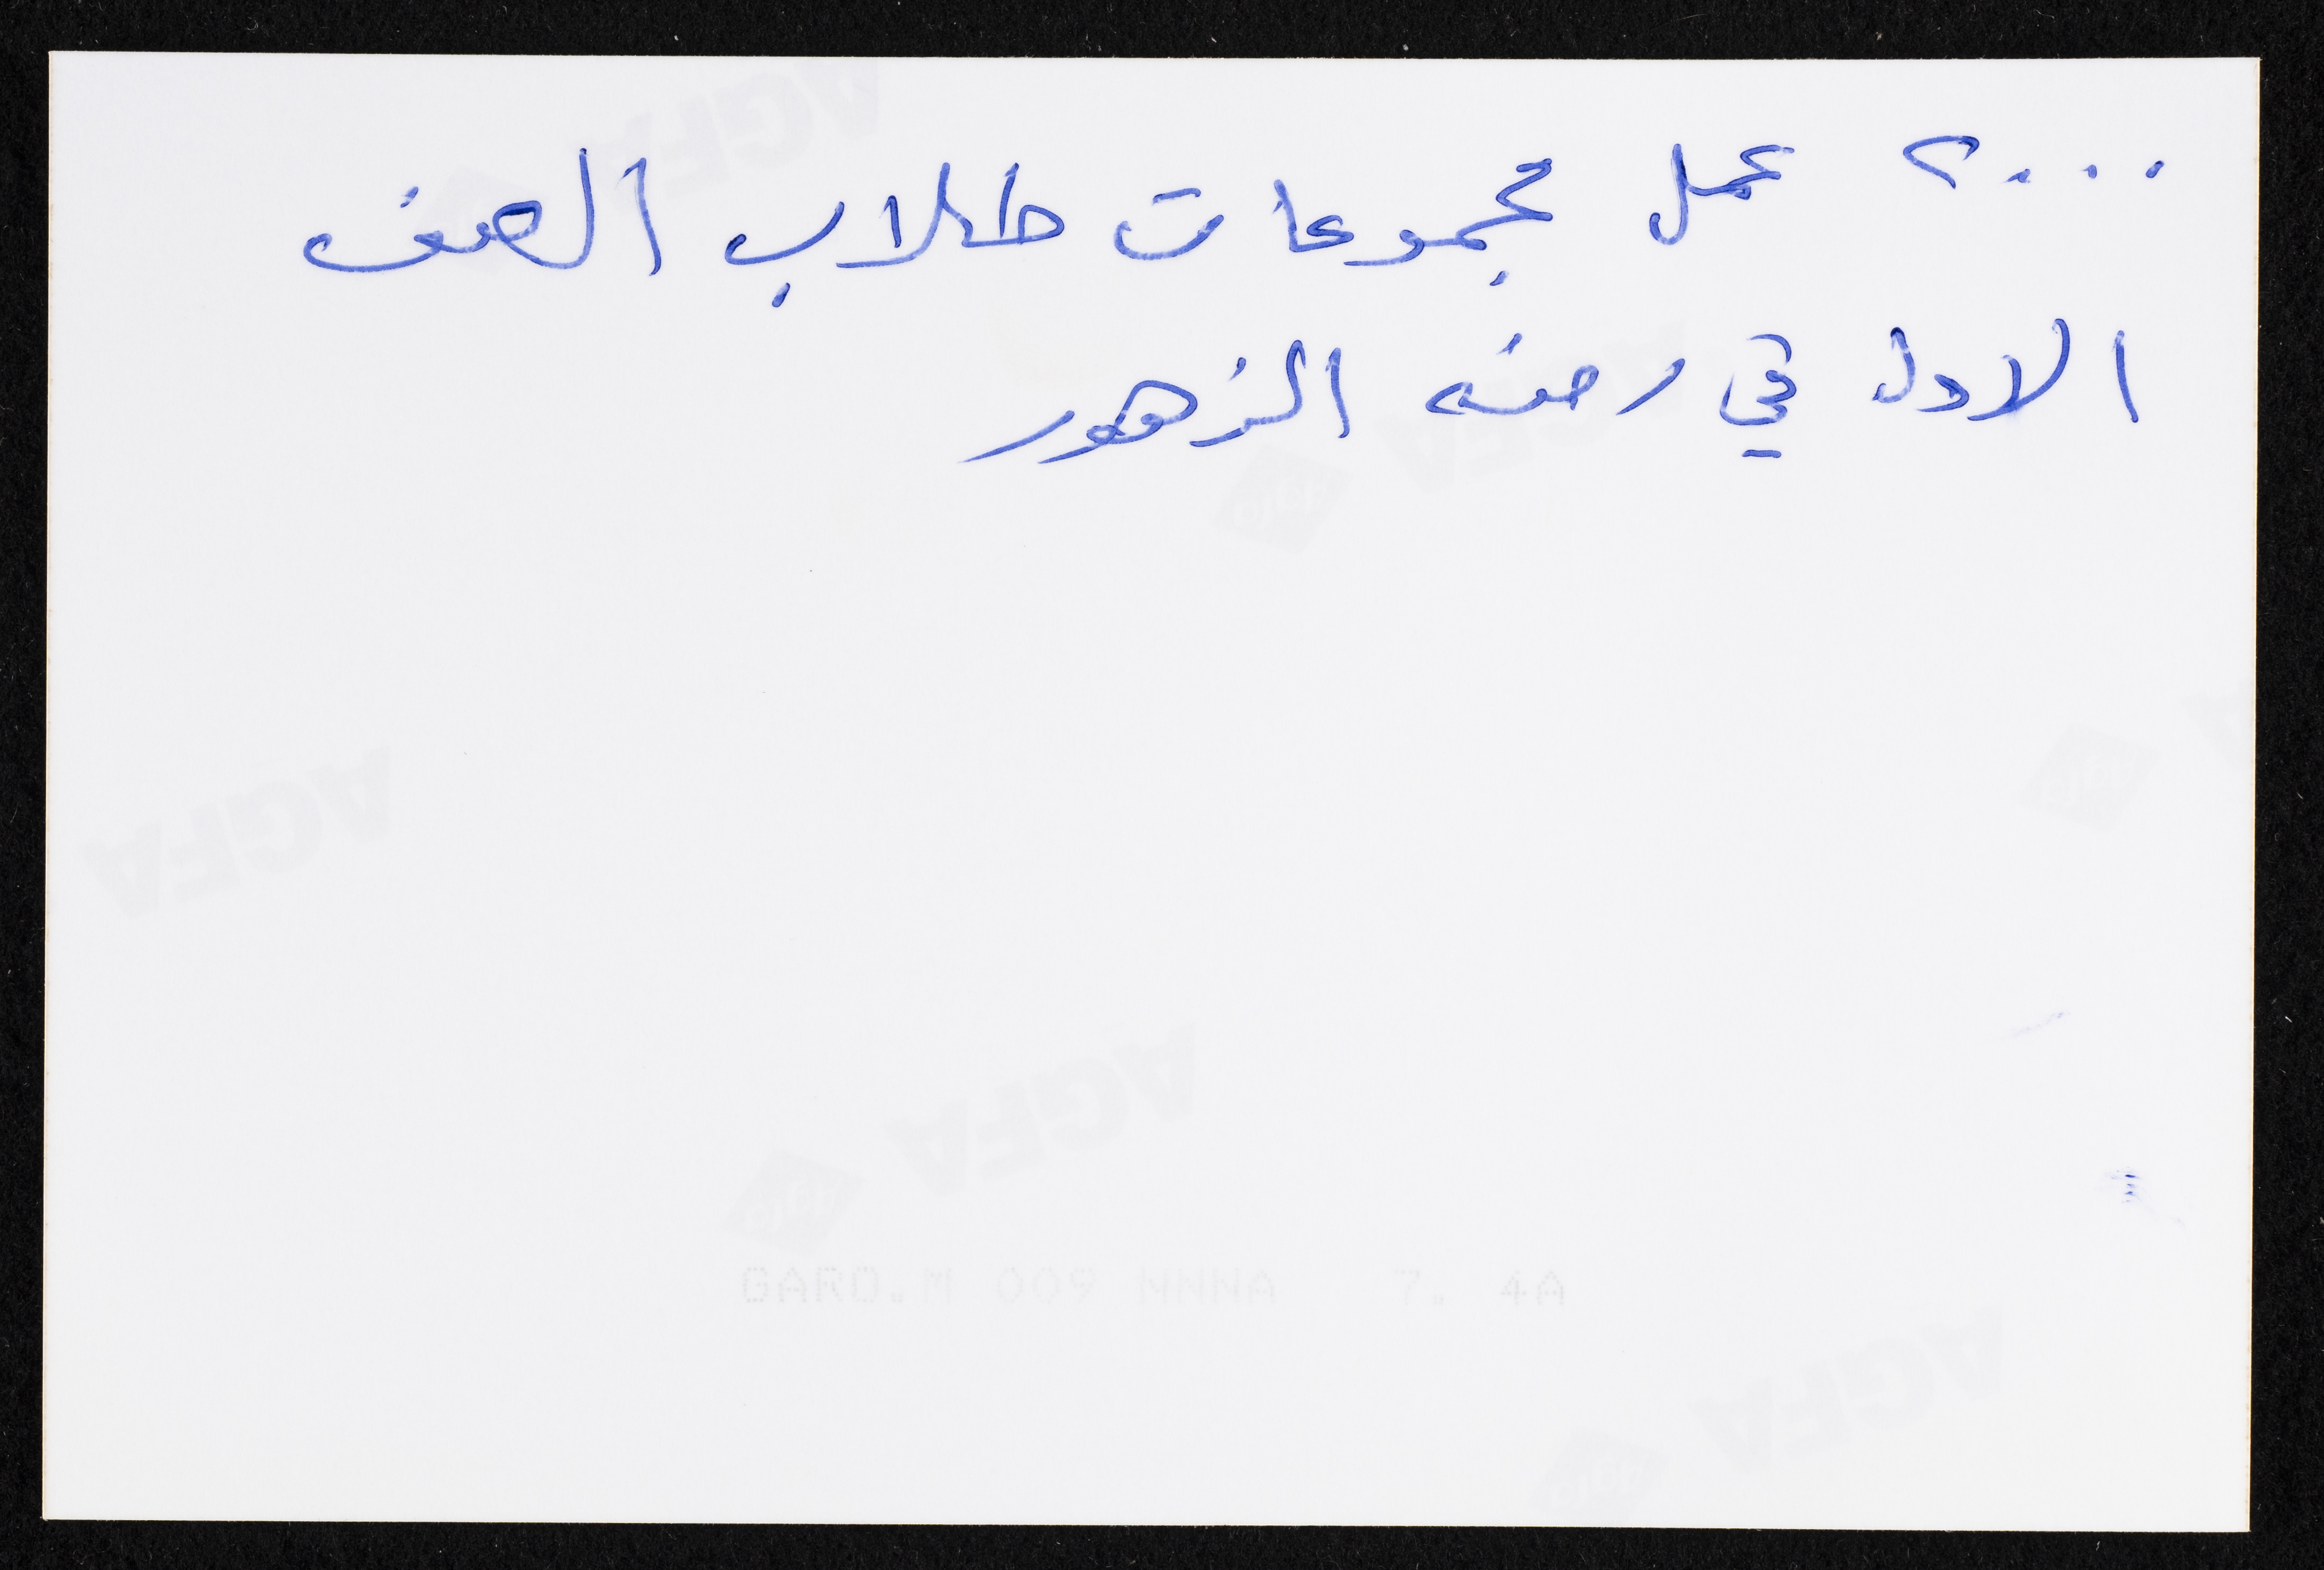 ٢٠٠٠ عمل مجموعات طلاب الصف
الاول في رضه الزهور
AGFA
AGFA
AGFA
AGFA
AGFA
GARO.M 009 NNNA 7. 4A